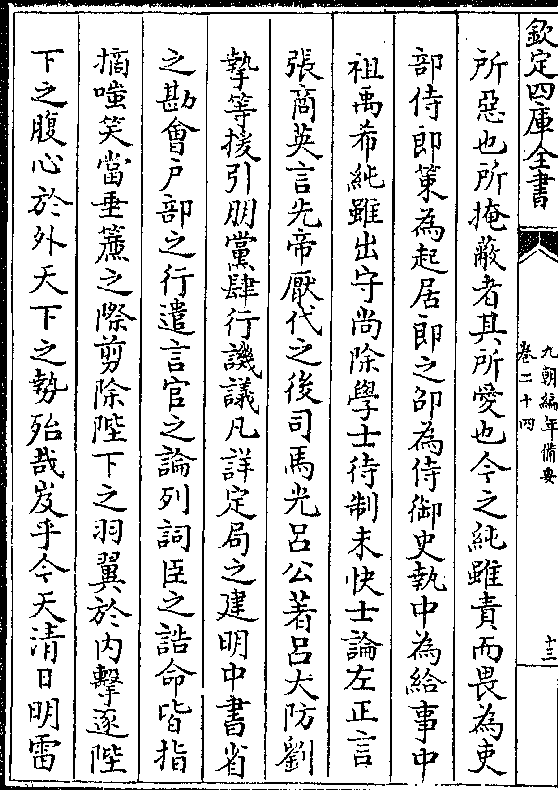 欽定四庫全書
九朝編年備要
卷二十四
十三
所惡也所掩蔽者其所愛也今之純雖責而畏為吏
部侍郎策為起居郎之邵為侍御史執中為給事中
祖禹希純雖出守尚除學士待制未快士論左正言
張商英言先帝厭代之後司馬光呂公著呂大防劉
摯等援引朋黨肆行譏議凡詳定局之建明中書省
之勘會户部之行遣言官之論列詞臣之誥命皆指
摘嗤笑當垂簾之際剪除陛下之羽翼於内擊逐陛
下之腹心於外天下之勢殆哉岌乎今天清日明雷